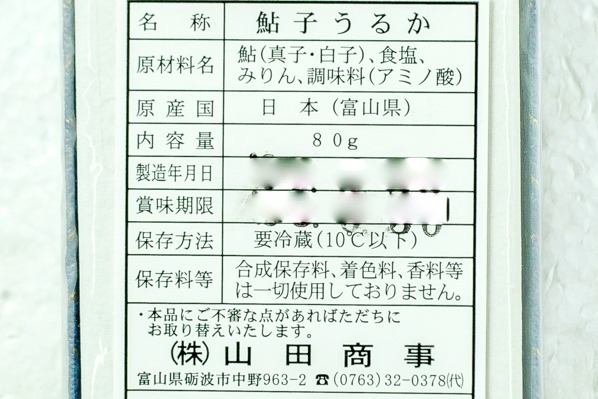 名称 鮎子うるか
原材料名 鮎(真子・白子)、食塩、
みりん、調味料(アミノ酸)
原産国 日本(富山県)
内容量 80g
製造年月日
賞味期限
保存方法 要冷蔵(10℃以下)
保存料等 合成保存料、着色料、香料等
は一切使用しておりません。
・本品にご不審な点があればただちに
お取り替えいたします。
(株)山田商事
富山県砺波市中野963-2 ☎(0763)32-0378(代)